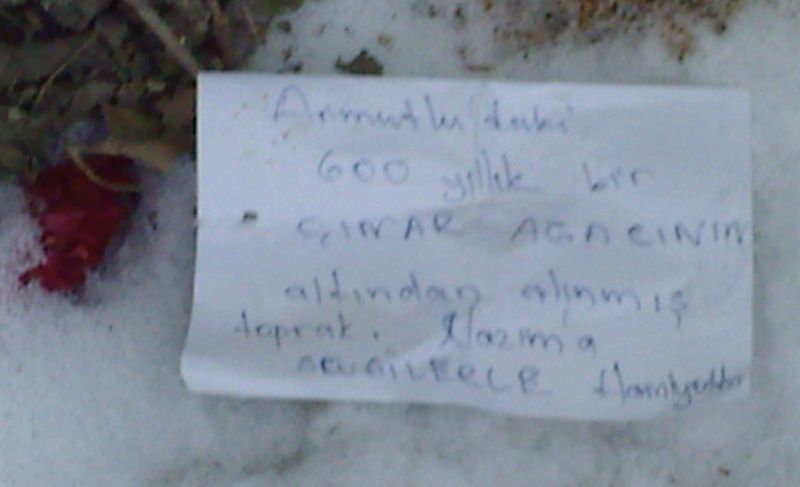 Armutlu'daki
600 yıllık bir
ÇINAR AĞACININ
altından alınmış
toprak. Nazım'a
SEVGİLERLE